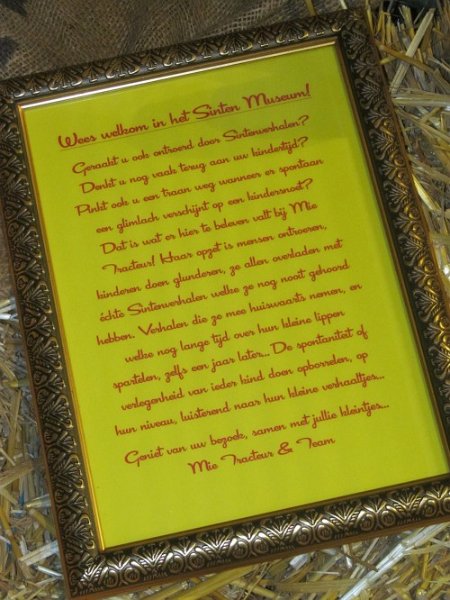 Wees welkom in het Sinten Museum!
Geraakt u ook ontroerd door Sintenverhalen?
Denkt u nog vaak terug aan uw kindertijd?
Pinkt ook u een traan weg wanneer er spontaan
een glimlach verschijnt op een kindersnoet?
Dat is wat er hier te beleven valt bij Mie
Tracteur! Haar opzet is mensen ontroeren,
kinderen doen glunderen, ze allen overladen met
échte Sintenverhalen welke ze nog nooit gehoord
hebben. Verhalen die ze mee huiswaarts nemen, en
welke nog lange tijd over hun kleine lippen
spartelen, zelfs een jaar later... De spontaniteit of
verlegenheid van ieder kind doen opborrelen, op
hun niveau, luisterend naar hun kleine verhaaltjes...
Geniet van uw bezoek, samen met jullie kleintjes...
Mie Tracteur & Team